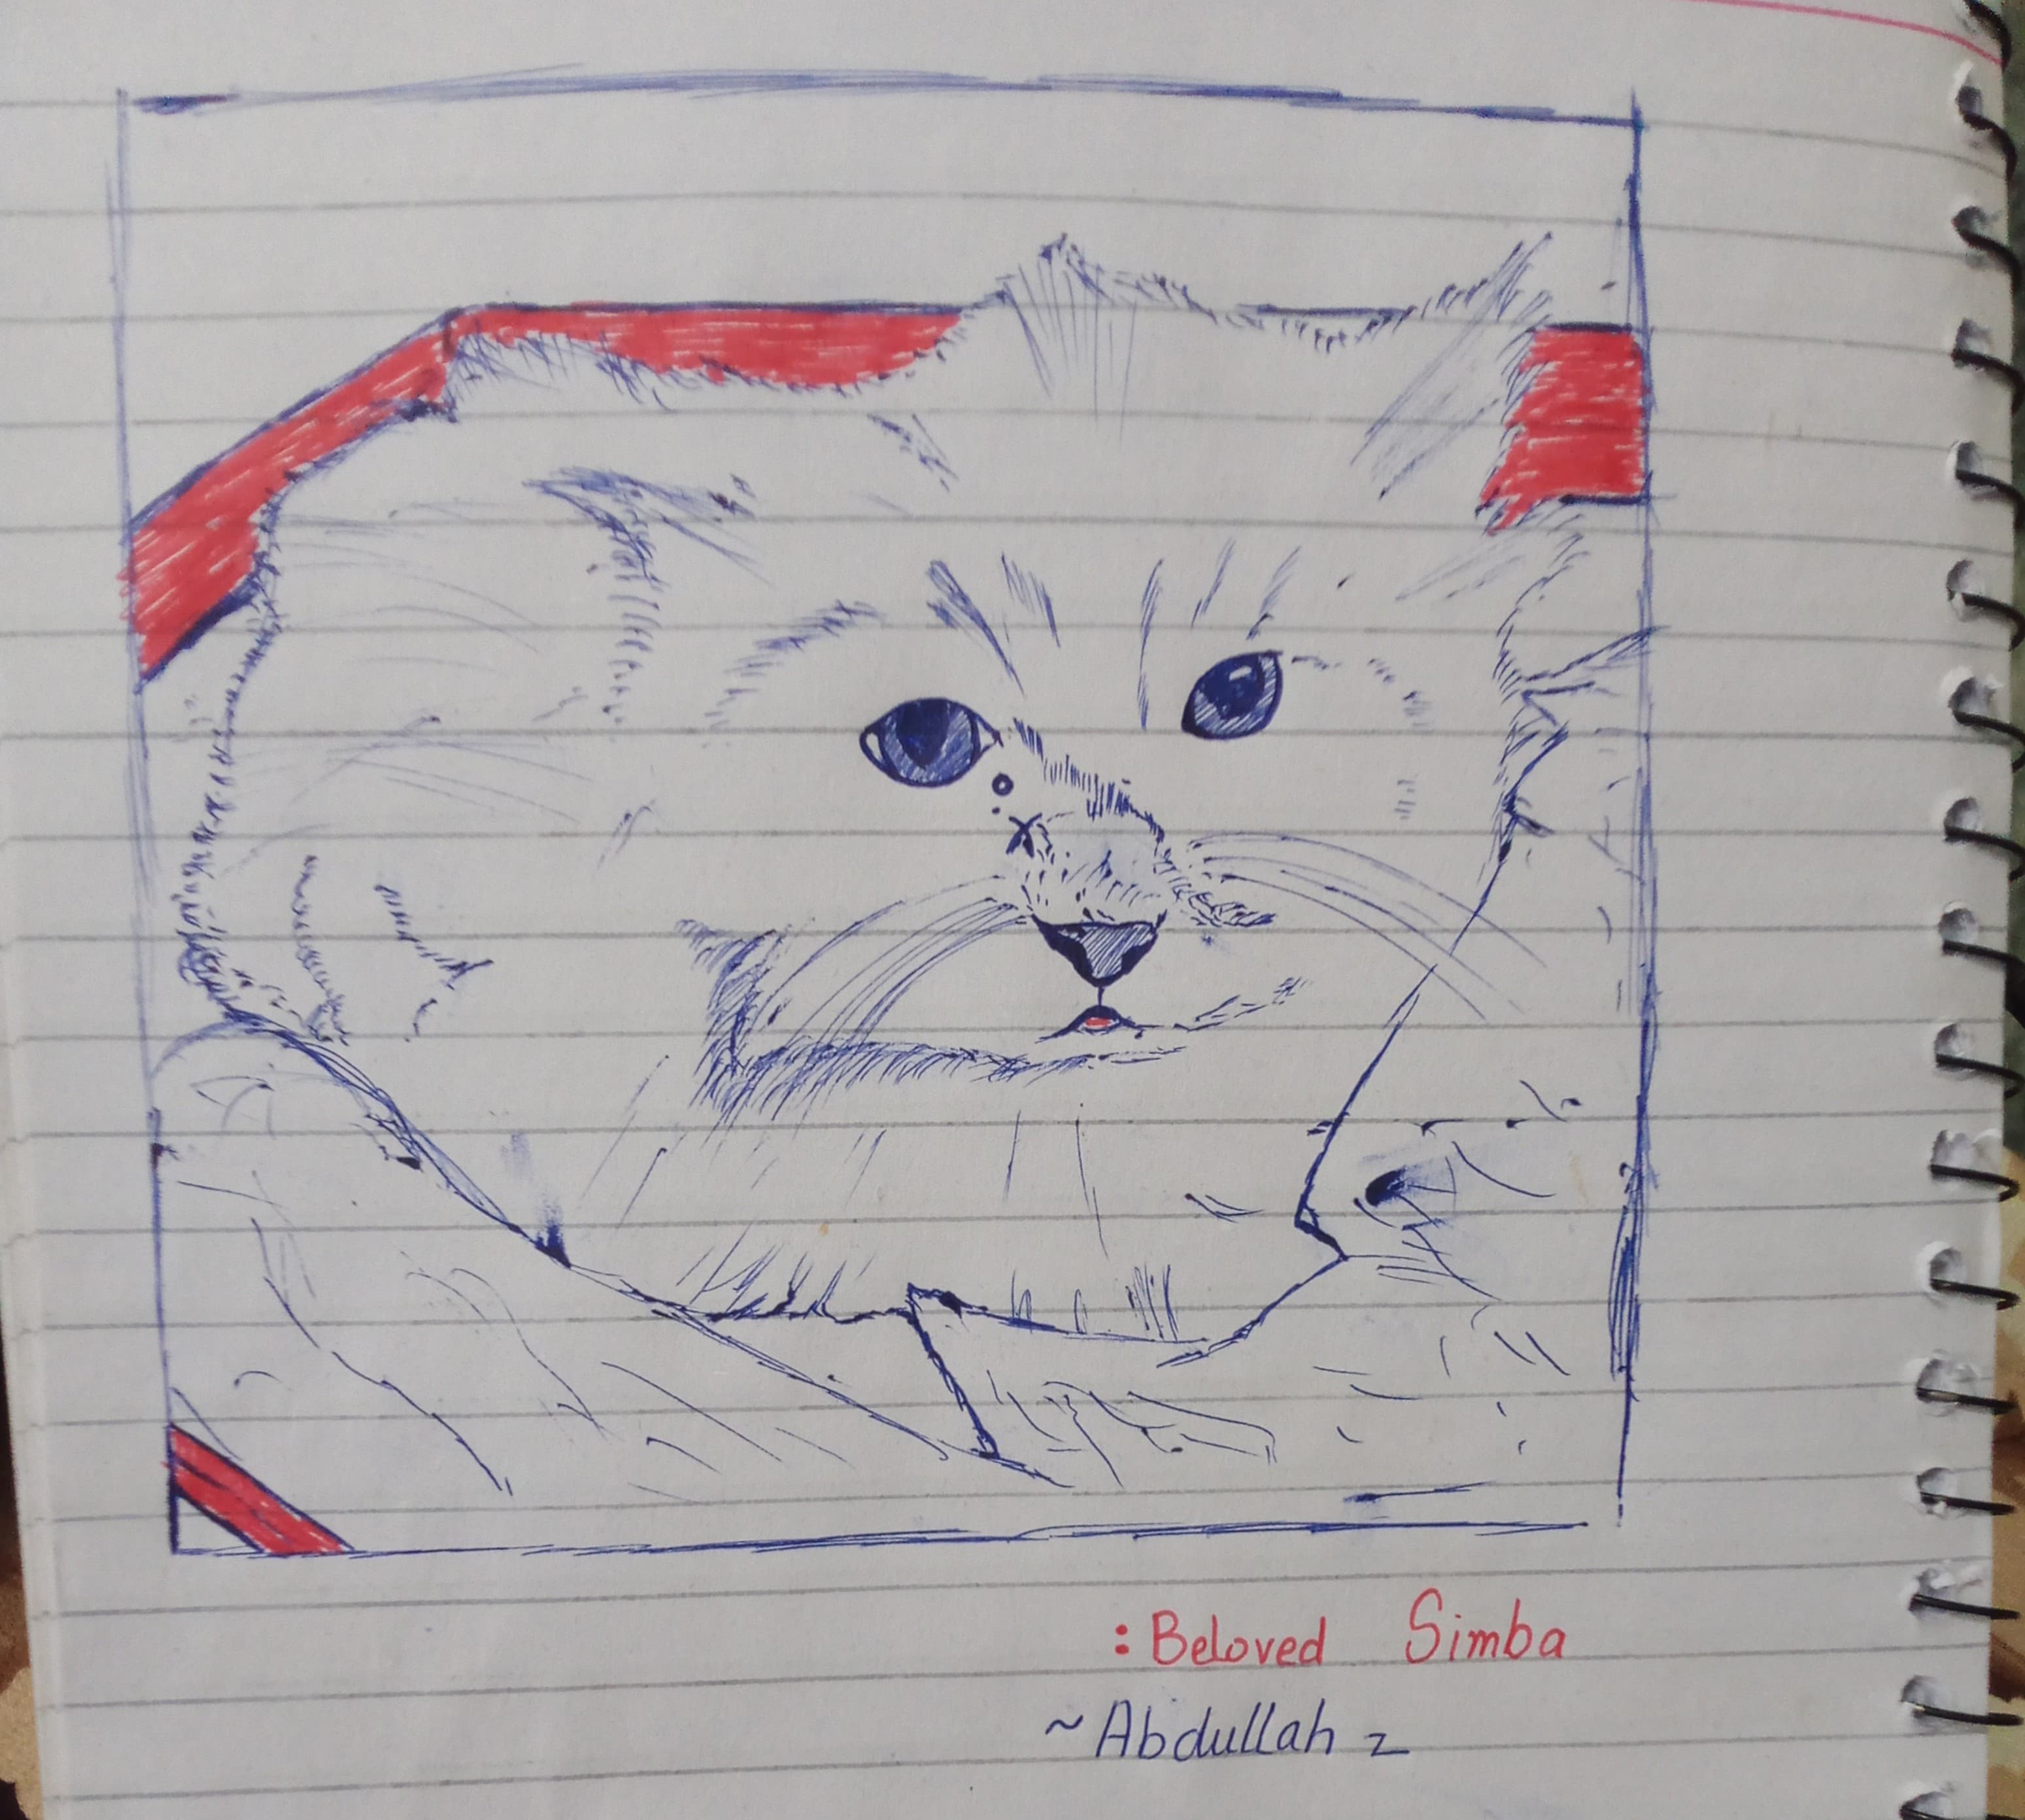 : Beloved Simba
~ Abdullah Z